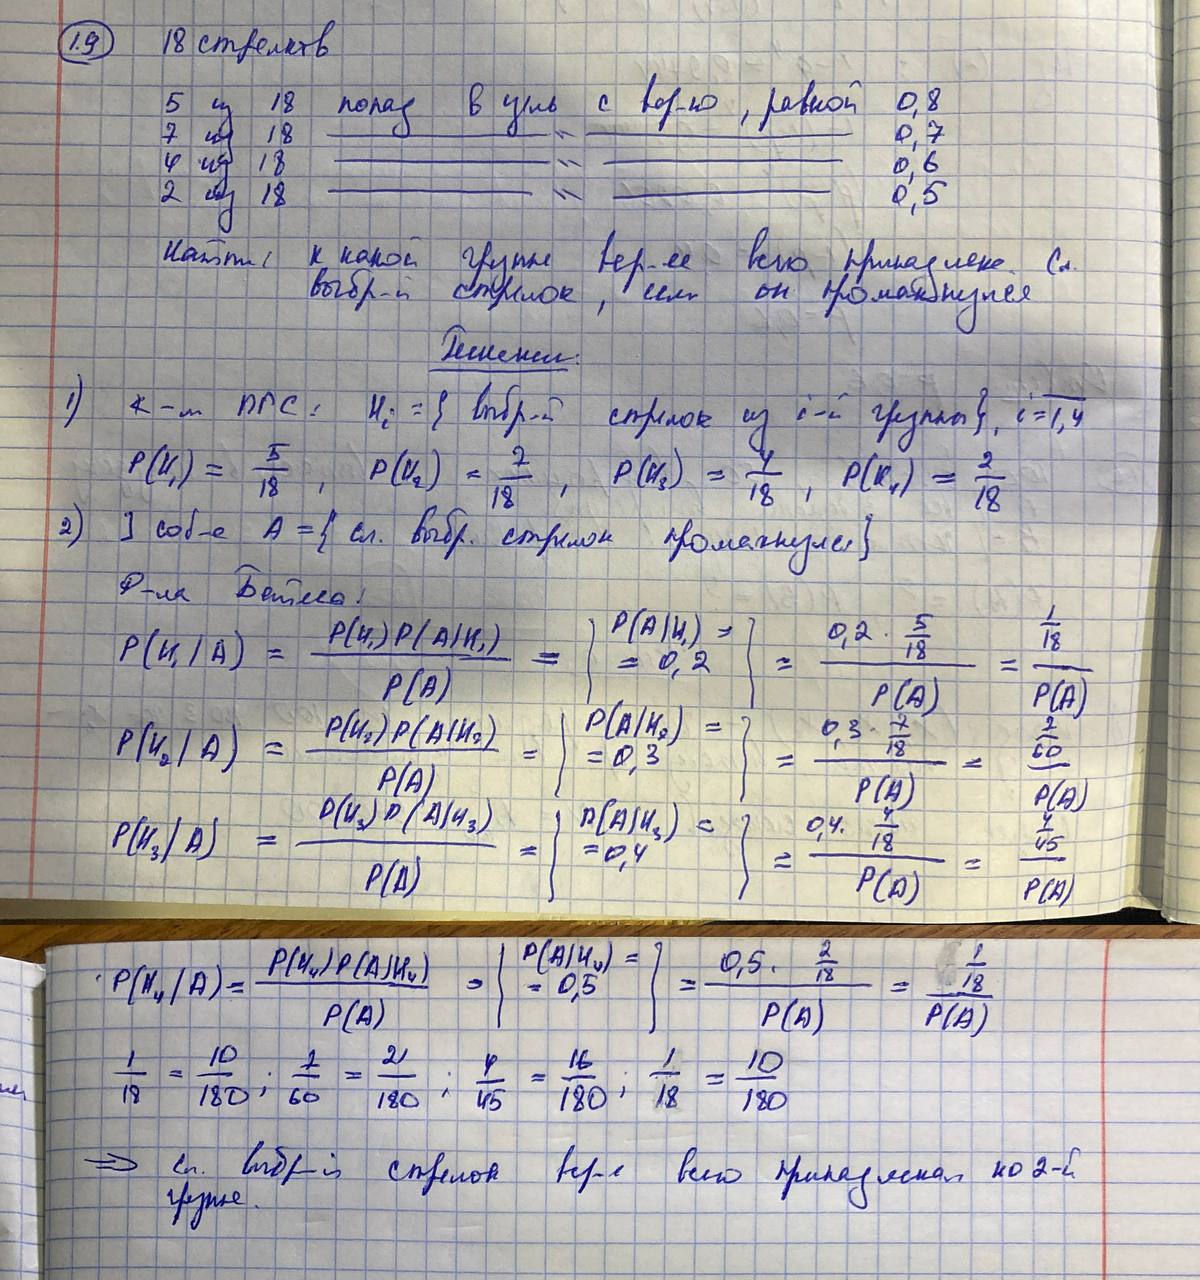 1.9 18 стрелков
5 из 18 попад в цель с вер-ю, равной 0,8
7 из 18 —〃— 0,7
4 из 18 —〃— 0,6
2 из 18 —〃— 0,5
Найти: к какой группе вер-ее всего принадлеж. сл.
выбр-й стрелок, если он промахнулся
Решение.
1) К-м ППС: Hᵢ = { выбр-й стрелок из i-й группы}, i = 1,4
P(H₁) = 5/18, P(H₂) = 7/18, P(H₃) = 4/18, P(H₄) = 2/18
2) ] соб-е A = { сл. выбр. стрелок промахнулся}
Ф-ла Байеса:
P(H₁/A) = P(H₁)P(A|H₁)/P(A) = } P(A|H₁) = = 0,2 } = 0,2 · 5/18 / P(A) = 1/18 / P(A)
P(H₂/A) = P(H₂)P(A|H₂)/P(A) = } P(A|H₂) = = 0,3 } = 0,3 · 7/18 / P(A) = 7/60 / P(A)
P(H₃/A) = P(H₃)P(A|H₃)/P(A) = { P(A|H₃) = = 0,4 } = 0,4 · 4/18 / P(A) = 4/45 / P(A)
P(H₄/A) = P(H₄)P(A|H₄)/P(A) = { P(A|H₄) = = 0,5 } = 0,5 · 2/18 / P(A) = 1/18 / P(A)
1/18 = 10/180; 7/60 = 21/180; 4/45 = 16/180; 1/18 = 10/180
⇒ сл. выбр-й стрелок вер-е всего принадлежал ко 2-й
группе.